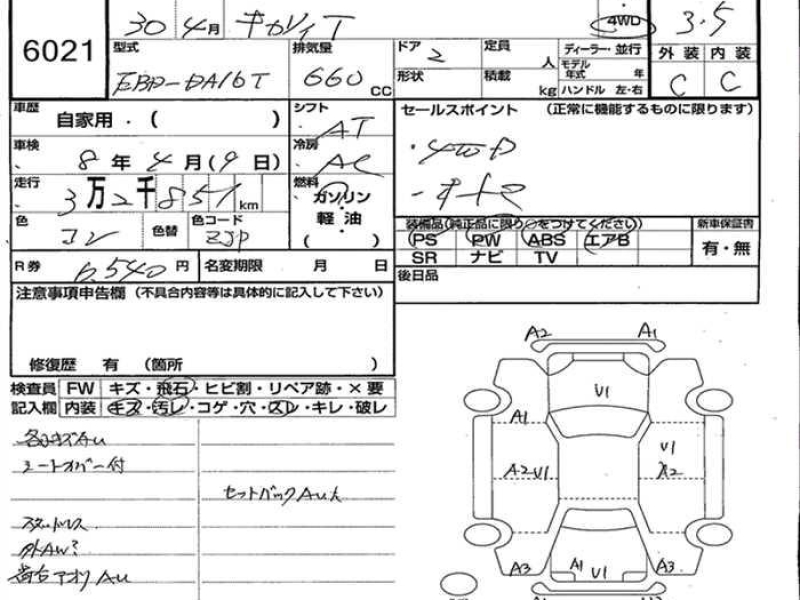 6021
30 4月 キャリイT 4WD 3.5
型式 EBD-DA16T 排気量 660 CC
ドア 2 定員 人 ディーラー・並行
形状 積載 kg モデル年式 年
ハンドル 左・右
外装 内装
C C
車歴 自家用・( ) シフト AT
車検 8年4月(9日) 冷房 AC
走行 3万2千851 km 燃料 ガソリン 軽油 ( )
色 コン 色替 色コード ZJP
R券 6,540円 名変期限 月 日
セールスポイント (正常に機能するものに限ります)
・4WD
装備品(純正品に限り○をつけてください) 新車保証書
PS PW ABS エアB 有・無
SR ナビ TV
後日品
注意事項申告欄 (不具合内容等は具体的に記入して下さい)
修復歴 有 (箇所 )
検査員 FW キズ・飛石・ヒビ割・リペア跡・×要
記入欄 内装 キズ・汚レ・コゲ・穴・スレ・キレ・破レ
各所キズAu
シートカバー付
セットバックAu大
スタッドレス
外AW?
荷台アオリAu
A2 A1
U1
A1
U1
A2 U1
A2
A3 A1 U1 A3